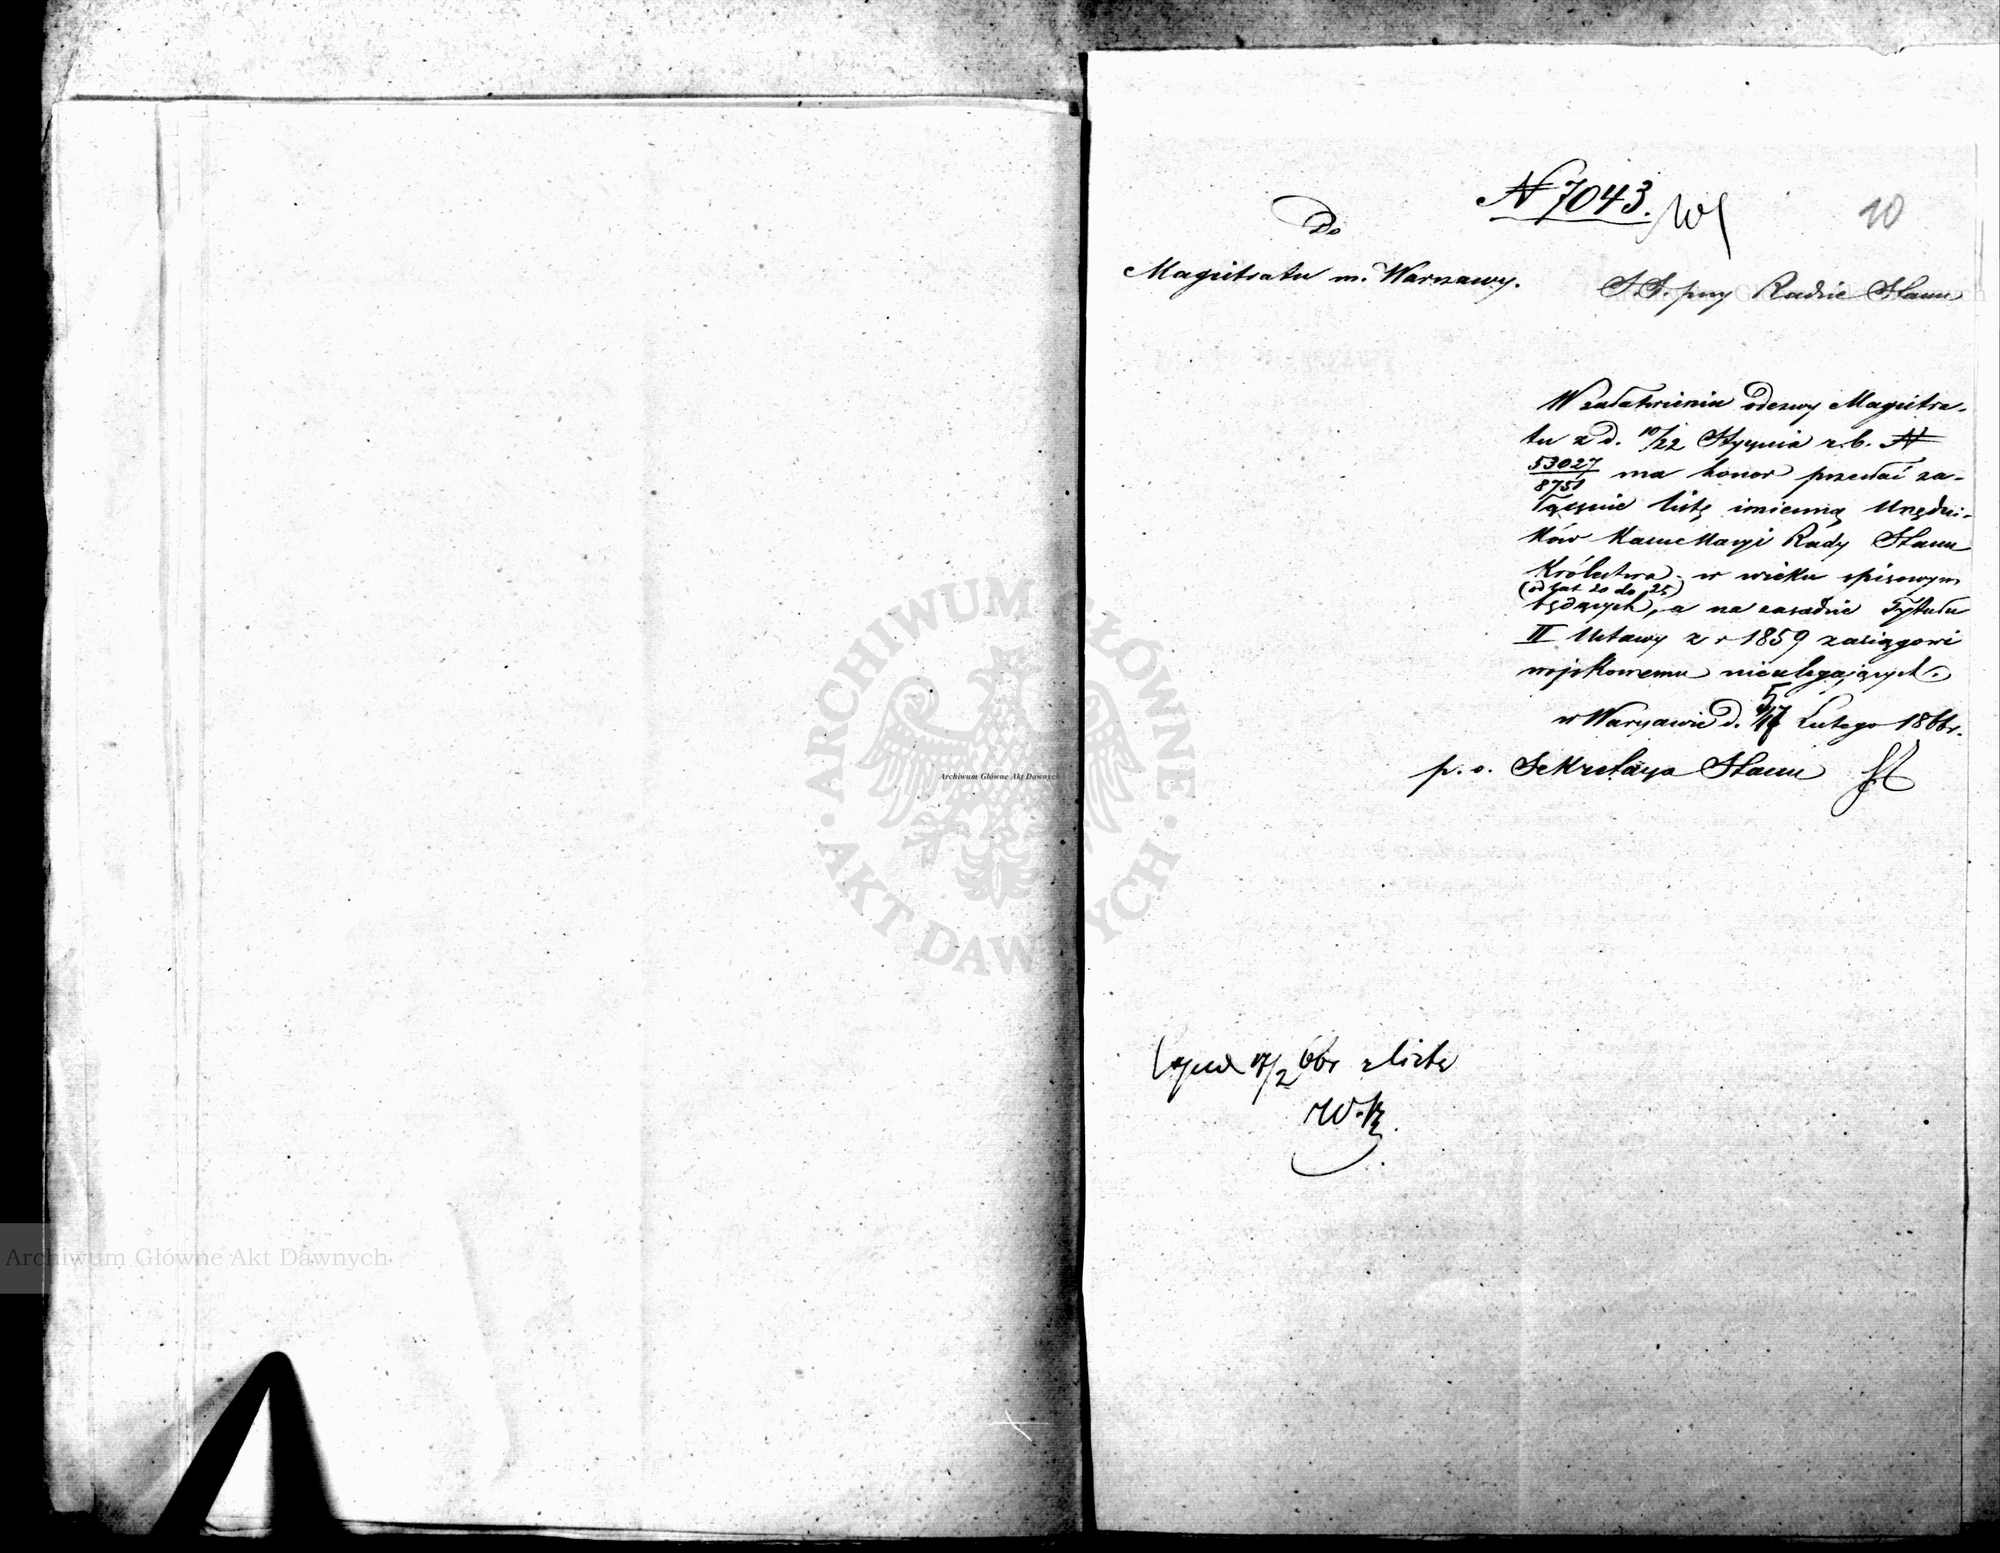 N 7043.
10
Do
Magistratu m. Warszawy.
S.S. przy Radzie Stanu
W załatwieniu odezwy Magistra-
tu z d. 10/22 Stycznia r.b. N
53027/8751 ma honor przesłać za-
łącznie listę imienną Urzędni-
ków Kancellaryi Rady Stanu
Królestwa w wieku spisowym
(od lat 20 do 25)
będących, a na zasadzie Tytułu
II Ustawy z r 1859 zaciągowi
wojskowemu nieulegających.
w Warszawie d. 5/17 Lutego 1866r.
p. o. Sekretarza Stanu
17/2 66r z listą
ARCHIWUM GŁÓWNE AKT DAWNYCH
Archiwum Główne Akt Dawnych
Archiwum Główne Akt Dawnych